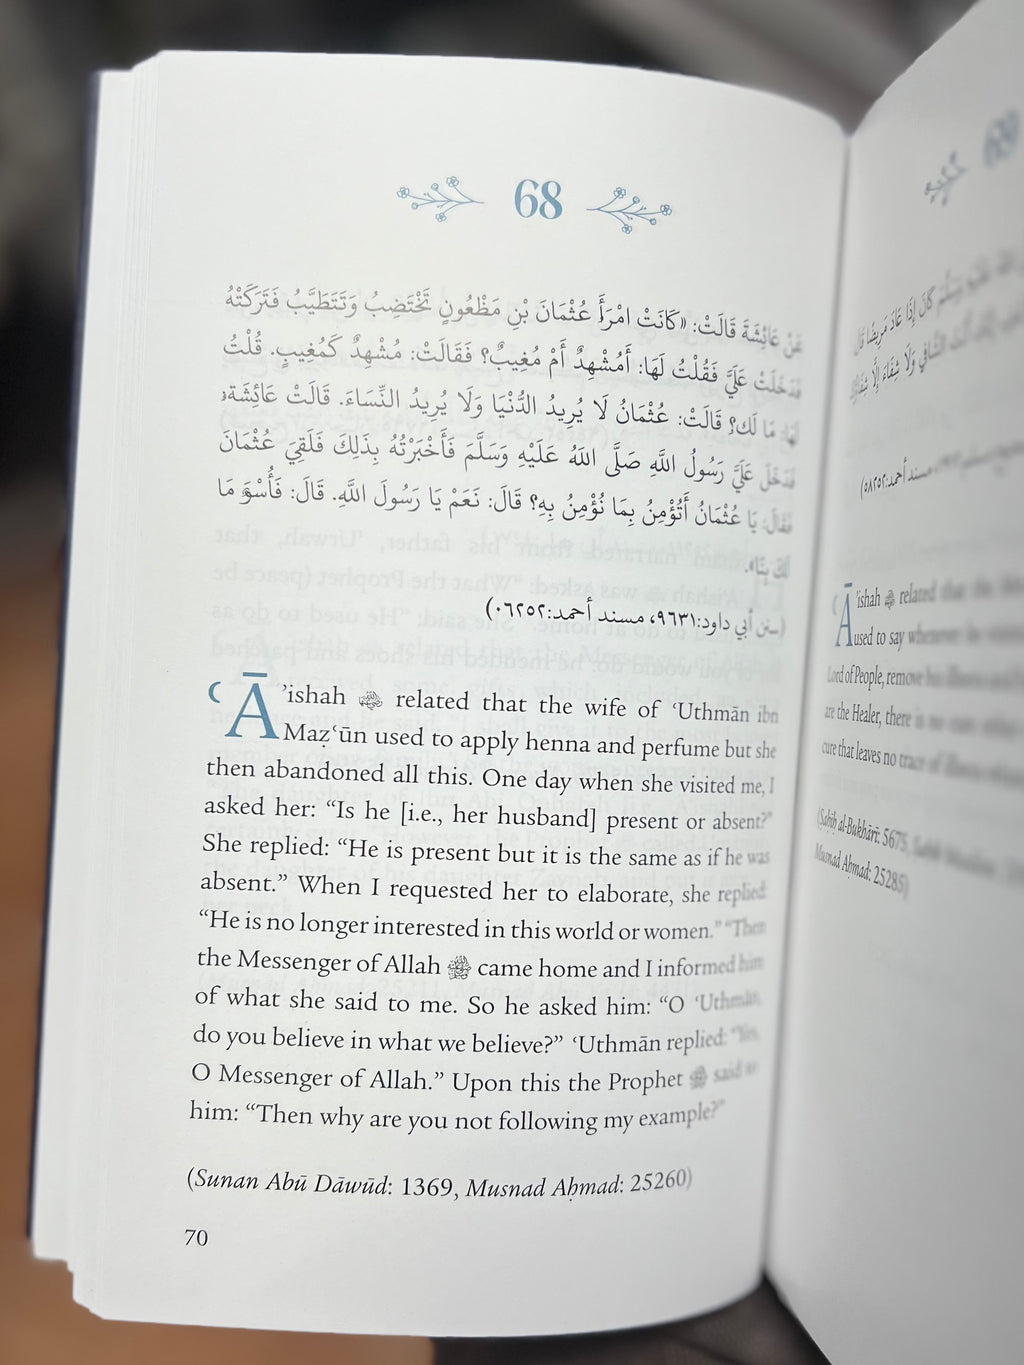 68
عَنْ عَائِشَةَ قَالَتْ: «كَانَتْ امْرَأَ عُثْمَانَ بْنِ مَظْعُونٍ تَخْتَضِبُ وَتَتَطَيَّبُ فَتَرَكَتْهُ
فَدَخَلَتْ عَلَيَّ فَقُلْتُ لَهَا: أَمُشْهِدٌ أَمْ مُغِيبٌ؟ فَقَالَتْ: مُشْهِدٌ كَمُغِيبٍ. قُلْتُ
لَهَا: مَا لَكِ؟ قَالَتْ: عُثْمَانُ لَا يُرِيدُ الدُّنْيَا وَلَا يُرِيدُ النِّسَاءَ. قَالَتْ عَائِشَةُ:
فَدَخَلَ عَلَيَّ رَسُولُ اللَّهِ صَلَّى اللهُ عَلَيْهِ وَسَلَّمَ فَأَخْبَرْتُهُ بِذَلِكَ فَلَقِيَ عُثْمَانَ
فَقَالَ: يَا عُثْمَانُ أَتُؤْمِنُ بِمَا نُؤْمِنُ بِهِ؟ قَالَ: نَعَمْ يَا رَسُولَ اللَّهِ. قَالَ: فَأُسْوَةٌ مَا
لَكَ بِنَا».
(سنن أبي داود:٩٦٣١، مسند أحمد:٠٦٢٥٢)
ʿĀ’ishah related that the wife of ʿUthmān ibn
Maẓʿūn used to apply henna and perfume but she
then abandoned all this. One day when she visited me, I
asked her: “Is he [i.e., her husband] present or absent?”
She replied: “He is present but it is the same as if he was
absent.” When I requested her to elaborate, she replied:
“He is no longer interested in this world or women.” “Then
the Messenger of Allah ﷺ came home and I informed him
of what she said to me. So he asked him: “O ʿUthmān,
do you believe in what we believe?” ʿUthmān replied: “Yes,
O Messenger of Allah.” Upon this the Prophet ﷺ said to
him: “Then why are you not following my example?”
(Sunan Abū Dāwūd: 1369, Musnad Aḥmad: 25260)
70
69
كَانَ إِذَا عَادَ مَرِيضًا قَالَ
وَلَا شِفَاءَ إِلَّا
مسند أحمد:٥٨٢٥٢)
ʿĀ’ishah related that the
used to say whenever he
Lord of People, remove his
are the Healer, there is no cure
cure that leaves no trace of illness
(Ṣaḥīḥ al-Bukhārī: 5675,
Musnad Aḥmad: 25285)